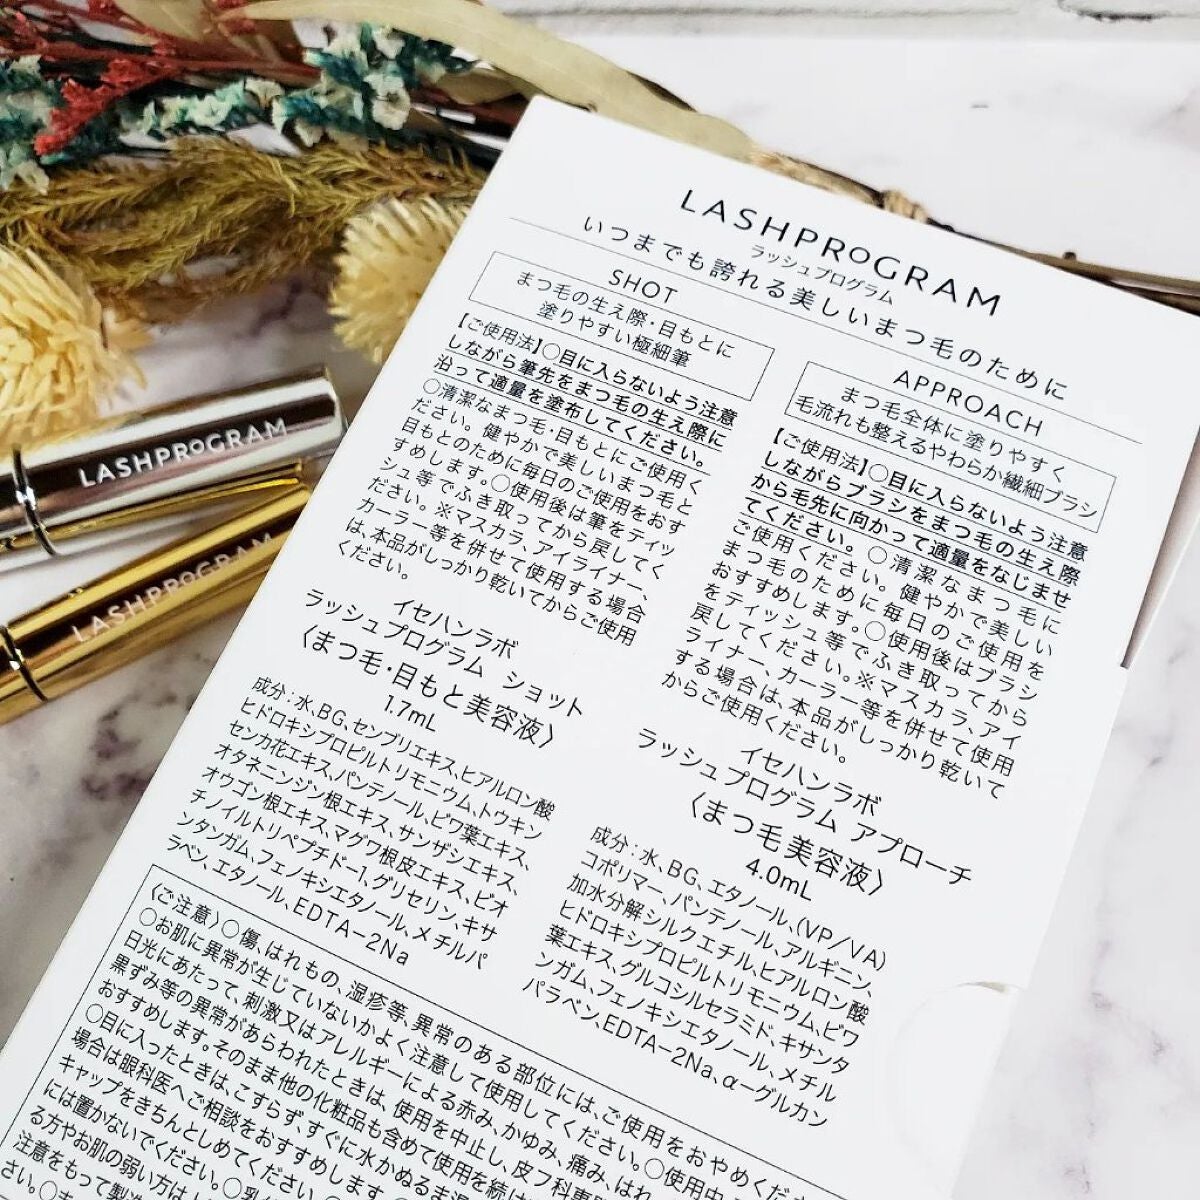 LASHPROGRAM
ラッシュプログラム
いつまでも誇れる美しいまつ毛のために
SHOT
まつ毛の生え際・目もとに
塗りやすい極細筆
【ご使用法】○目に入らないよう注意
しながら筆先をまつ毛の生え際に
沿って適量を塗布してください。
○清潔なまつ毛・目もとにご使用く
ださい。健やかで美しいまつ毛と
目もとのために毎日のご使用をおす
すめします。○使用後は筆をティッ
シュ等でふき取ってから戻してく
ださい。※マスカラ、アイライナー、
カーラー等を併せて使用する場合
は、本品がしっかり乾いてからご使用
ください。
イセハンラボ
ラッシュプログラム ショット
〈まつ毛・目もと美容液〉
1.7mL
成分:水、BG、センブリエキス、ヒアルロン酸
ヒドロキシプロピルトリモニウム、トウキン
センカ花エキス、パンテノール、ビワ葉エキス、
オタネニンジン根エキス、サンザシエキス、
オウゴン根エキス、マグワ根皮エキス、ビオ
チノイルトリペプチド-1、グリセリン、キサ
ンタンガム、フェノキシエタノール、メチルパ
ラベン、エタノール、EDTA-2Na
APPROACH
まつ毛全体に塗りやすく
毛流れも整えるやわらか繊細ブラシ
【ご使用法】○目に入らないよう注意
しながらブラシをまつ毛の生え際
から毛先に向かって適量をなじませ
てください。○清潔なまつ毛に
ご使用ください。健やかで美しい
まつ毛のために毎日のご使用を
おすすめします。○使用後はブラシ
をティッシュ等でふき取ってから
戻してください。※マスカラ、アイ
ライナー、カーラー等を併せて使用
する場合は、本品がしっかり乾いて
からご使用ください。
イセハンラボ
ラッシュプログラム アプローチ
〈まつ毛美容液〉
4.0mL
成分:水、BG、エタノール、(VP/VA)
コポリマー、パンテノール、アルギニン、
加水分解シルクエチル、ヒアルロン酸
ヒドロキシプロピルトリモニウム、ビワ
葉エキス、グルコシルセラミド、キサンタ
ンガム、フェノキシエタノール、メチル
パラベン、EDTA-2Na、α-グルカン
〈ご注意〉○傷、はれもの、湿疹等、異常のある部位には、ご使用をおやめくだ
○お肌に異常が生じていないかよく注意して使用してください。○使用中
日光にあたって、刺激又はアレルギーによる赤み、かゆみ、痛み、はれ
黒ずみ等の異常があらわれたときは、使用を中止し、皮フ科専
おすすめします。そのまま他の化粧品も含めて使用を続
○目に入ったときは、こすらず、すぐに水かぬるま
場合は眼科医へご相談をおすすめします
キャップをきちんとしめてくだ
には置かないでください。○乳
る方やお肌の弱い方は
注意をもって製
さい。
LASHPROGRAM
LASHPROGRAM